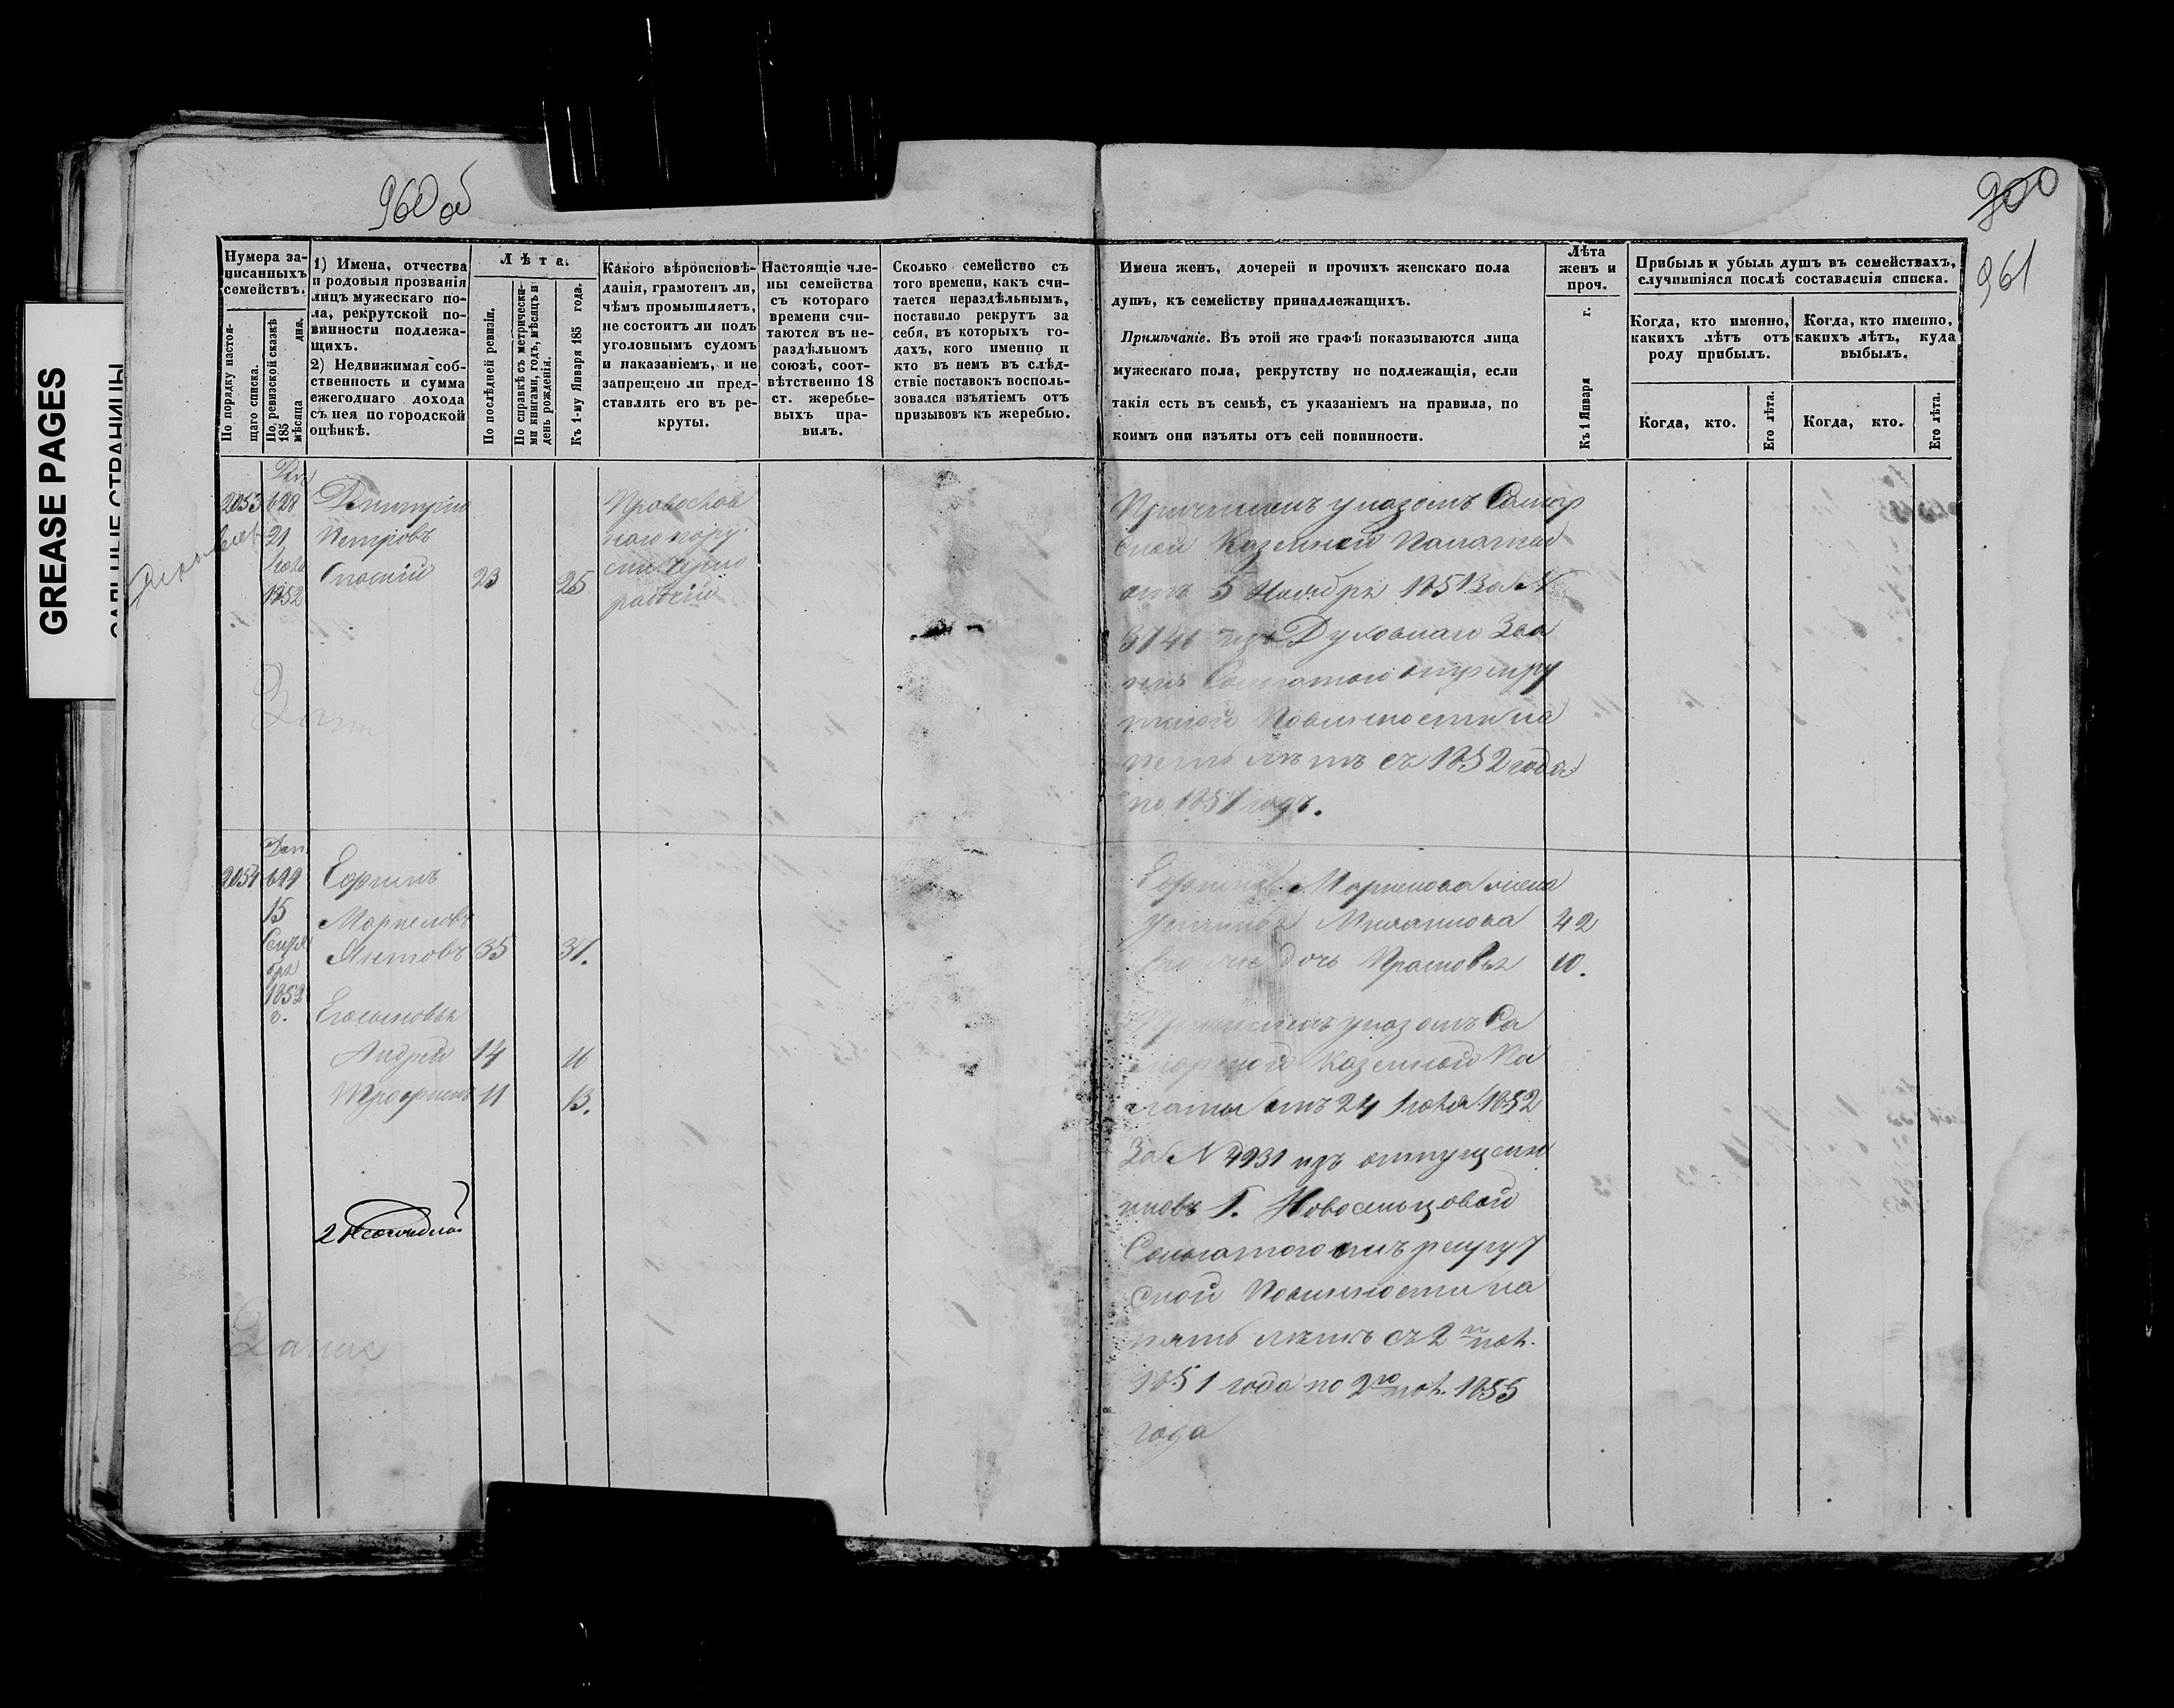 960 об
900
961
GREASE PAGES
Нумера за-
писанныхъ
семействъ.
По порядку настоя-
щаго списка.
По ревизской сказкѣ
185 дня.
мѣсяца
1) Имена, отчества
и родовыя прозванія
лицъ мужескаго по-
ла, рекрутской по-
винности подлежа-
щихъ.
2) Недвижимая соб-
ственность и сумма
ежегоднаго дохода
съ нея по городской
оцѣнкѣ.
Лѣта.
По послѣдней ревизіи.
По справкѣ съ метрически-
ми книгами, годъ, мѣсяцъ и
день рожденія.
Къ 1-му Января 185 года.
Какого вѣроисповѣ-
данія, грамотенъ ли,
чѣмъ промышляетъ,
не состоитъ ли подъ
уголовнымъ судомъ
и наказаніемъ, и не
запрещено ли пред-
ставлять его въ ре-
круты.
Настоящіе чле-
ны семейства
съ котораго
времени счи-
таются въ не-
раздѣльномъ
союзѣ, соот-
вѣтственно 18
ст. жеребье-
выхъ пра-
вилъ.
Сколько семейство съ
того времени, какъ счи-
тается нераздѣльнымъ,
поставило рекрутъ за
себя, въ которыхъ го-
дахъ, кого именно и
кто въ немъ въ слѣд-
ствіе поставокъ восполь-
зовался изъятіемъ отъ
призывовъ къ жеребью.
Имена женъ, дочерей и прочихъ женскаго пола
душъ, къ семейству принадлежащихъ.
Примѣчаніе. Въ этой же графѣ показываются лица
мужескаго пола, рекрутству не подлежащія, если
такія есть въ семьѣ, съ указаніемъ на правила, по
коимъ они изъяты отъ сей повинности.
Лѣта
женъ и
проч.
Къ 1 Января г.
Прибыль и убыль душъ въ семействахъ,
случившіяся послѣ составленія списка.
Когда, кто именно,
какихъ лѣтъ отъ
роду прибылъ.
Когда, кто именно,
какихъ лѣтъ, куда
выбылъ.
Когда, кто.
Его лѣта.
Когда, кто.
Его лѣта.
Доп
2053 628 Дмитрій
21 Петровъ
1852 23 25
Православ
наго
Причисленъ указомъ Самар
ской Казенной Палаты
отъ 5 Ноября 1851 За №
изъ Духовнаго Зва
нія Сольготою отъ рекру
тской Повинности на
пять лѣтъ съ 1852 года
по 1857 годъ.
Доп
2054 699 Ефимъ
15
Сентя
бря
1852
г.
Маркеловъ
35 37.
Его сыновья
Андрей 14 16
Трофимъ 11 13.
Ефима Маркелова жена
42
Его дочь Прасковья 10.
Причисленъ указомъ Са
марской Казенной Па
латы отъ 24 1852
За № 4931 изъ отпущен
никовъ Г. Новосильцовой
Сольготою отъ рекрут
ской Повинности на
пять лѣтъ съ 2 й пол.
1851 года по 2 ю пол. 1855
года